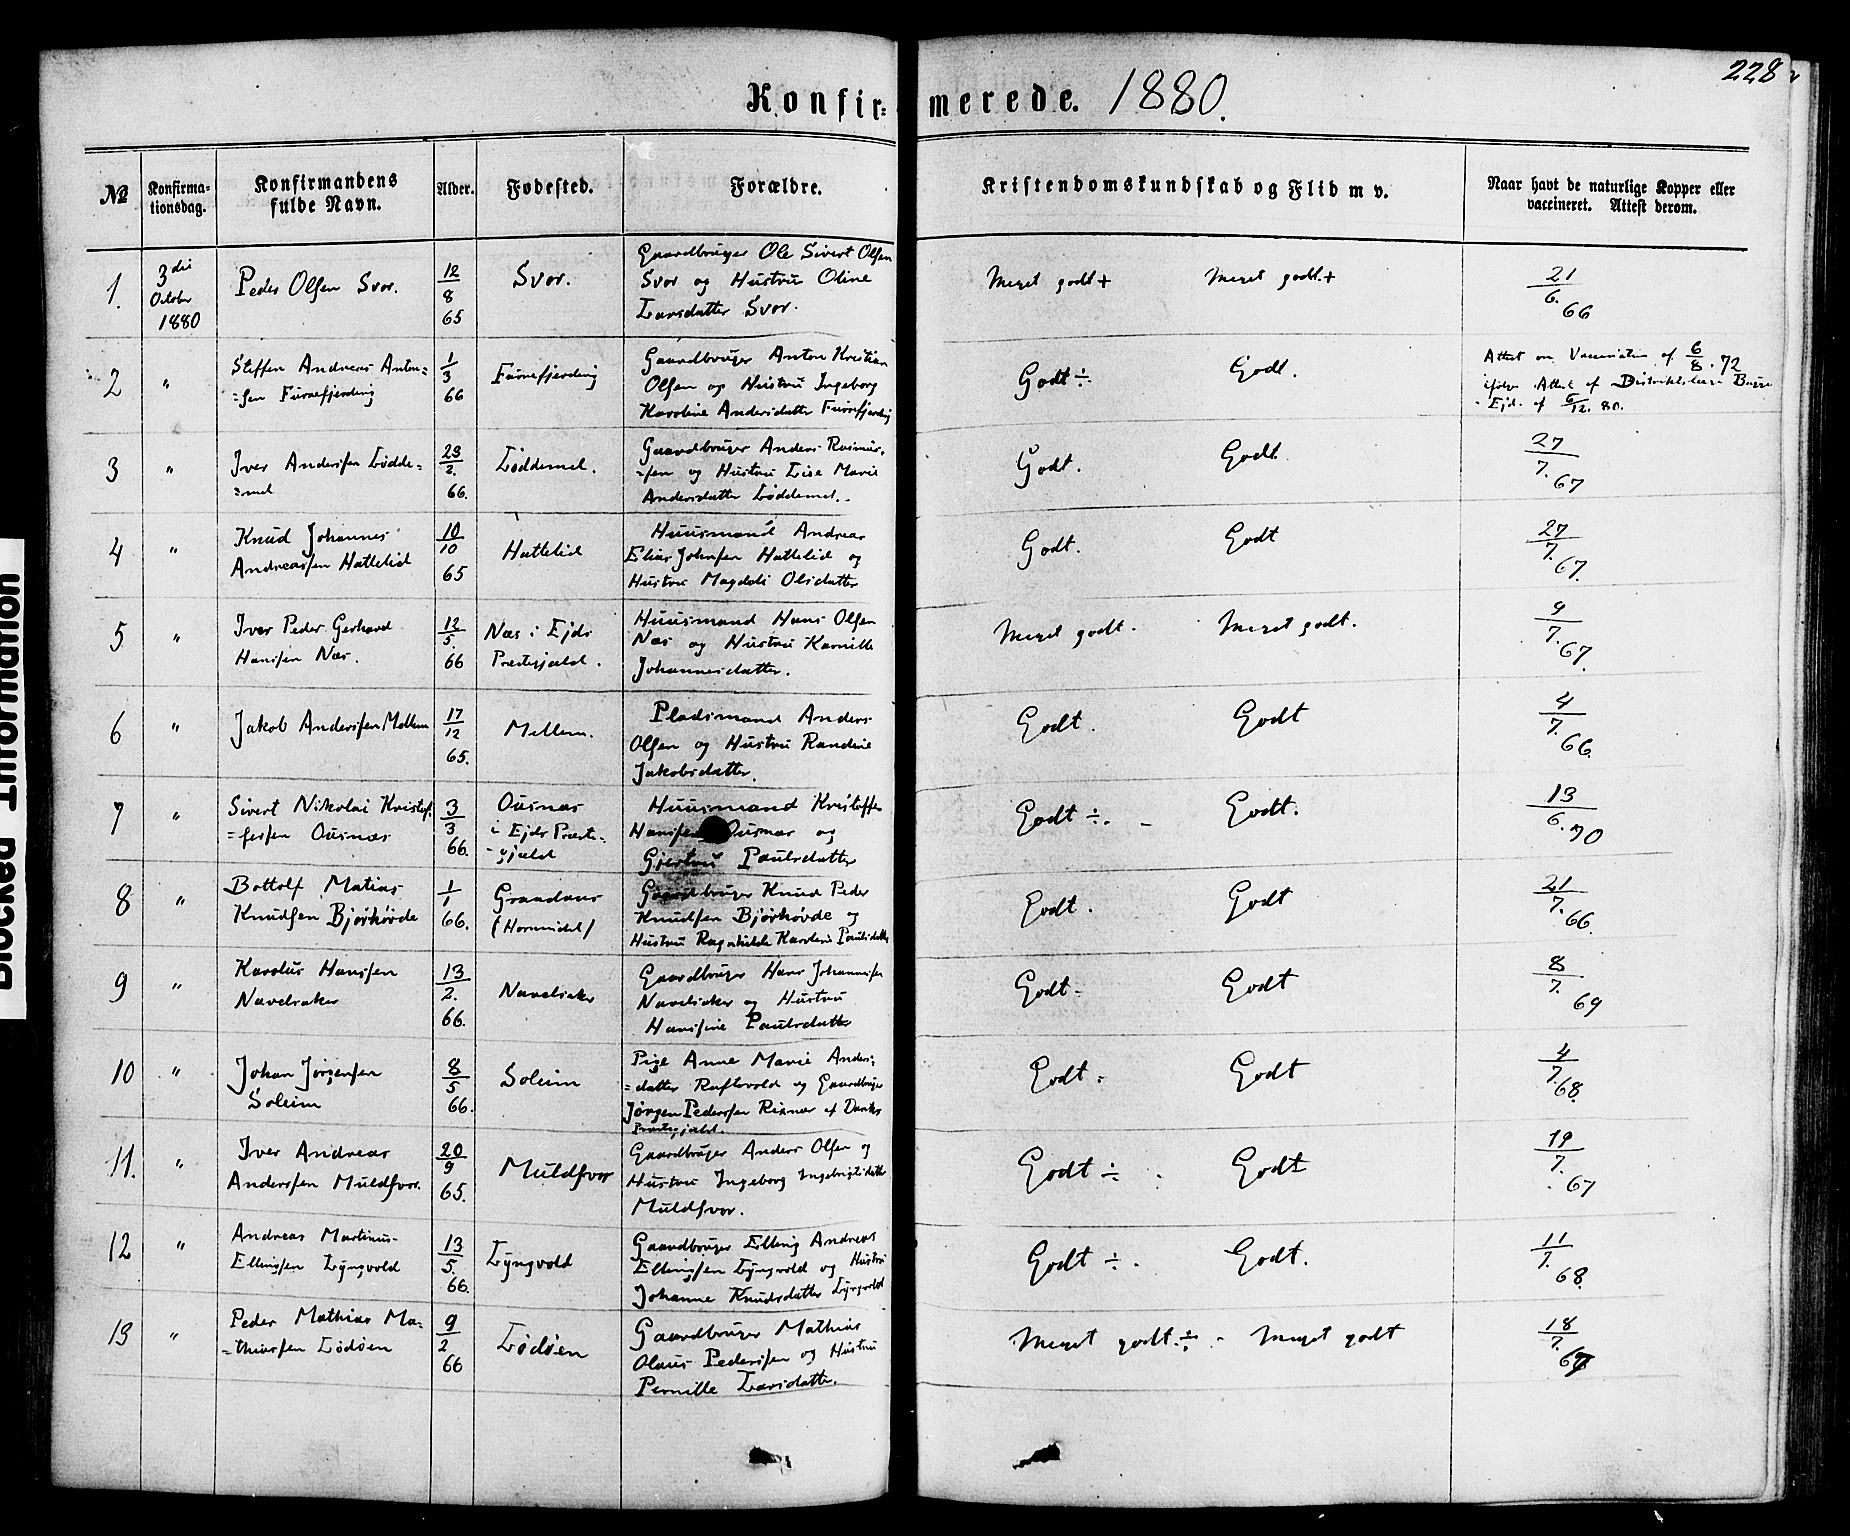 228
Konfir= merede. 1880.
№ Konfirma-tionsdag. Konfirmandens fulde Navn. Alder. Fødested. Forældre. Kristendomskundskab og Flid m v. Naar havt de naturlige Kopper eller vaccineret. Attest derom.
1. 3die October 1880 Peder Olsen Svor. 12/8 65 Svor. Gaardbruger Ole Sivert Olsen
Svor og Hustru Oline
Larsdatter Svor. Meget godt + Meget godt. + 21/6. 66
2 " Steffen Andreas Anton=
=sen Furrefjerding 1/3 66 Furrefjerding Gaardbruger Anton Kristian
Olsen og Hustru Ingeborg
Karoline Andersdatter Furrefjerdig Godt ÷ Godt. Attest om Vaccination af 6/8. 72
ifølge Attest af Distriktslæge
Ejd. af 6/12. 80.
3 " Iver Andersen Lødde=
=mel 23/2. 66. Løddemel. Gaardbruger Anders Rasmus=
=sen og Hustru Lise Marie
Andersdatter Løddemel. Godt. Godt. 27/7. 67
4 " Knud Johannes
Andreassen Hattelid 10/10 65 Hattelid Huusmand Andreas
Elias Johnsen Hattelid og
Hustru Magdeli Olsdatter Godt. Godt 27/7. 67.
5 " Iver Peder Gerhard
Hanssen Næs. 12/5. 66 Næs i Ejds
Præstegjæld. Huusmand Hans Olsen
Næs og Hustru Kornille
Johannesdatter. Meget godt. Meget godt. 9/7. 67.
6 " Jakob Andersen Mellem 17/12 65. Mellem. Pladsmand Anders
Olsen og Hustru Randine
Jakobsdatter. Godt. Godt 4/7. 66.
7 " Sivert Nikolai Kristof=
=fersen Ousnæs 3/3 66. Ousnæs
i Ejds Præste=
=gjæld Huusmand Kristoffer
Hanssen Ousnæs og
Gjertru Paulsdatter Godt ÷. Godt. 13/6. 70
8 " Bottolf Matias
Knudsen Bjørhovde 1/1 66. Graadaus
(Hornindal) Gaardbruger Knud Peder
Knudsen Bjørhovde og
Hustru Ragnhilde Karoline Paulsdatter Godt. Godt 21/7. 66.
9 " Karolus Hanssen
Navelsaker 13/2. 66. Navelsaker Gaardbruger Hans Johannessen
Navelsaker og Hustru
Hansine Paulsdatter Godt Godt 8/7. 69
10 " Johan Jørgensen
Soleim 8/5 66. Soleim Pige Anne Marie Anders=
=datter Raftevold og Gaardbruger
Jørgen Pedersen Rixnæs af Davikz
Præstegjæld. Godt Godt 4/7. 68.
11. " Iver Andreas
Anderssen Muldsvor. 20/9 65. Muldsvor Gaardbruger Anders Olsen og
Hustru Ingeborg Ingebrigtsdatter
Muldsvor. Godt ÷ Godt 19/7. 67
12 " Andreas Martinus
Ellingsen Lyngvold 13/5. 66. Lyngvold Gaardbruger Elling Andreas
Ellingsen Lyngvold og Hustru
Johanne Knudsdatter Lyngvold Godt ÷. Godt. 11/7. 68.
13 " Peder Mathias Ma=
=thiassen Lødøen 9/2 66 Lødøen Gaardbruger Mathias
Olaus Pedersen og Hustru
Pernille Larsdatter. Meget godt ÷. Meget godt 18/7. 67
Blocked Information